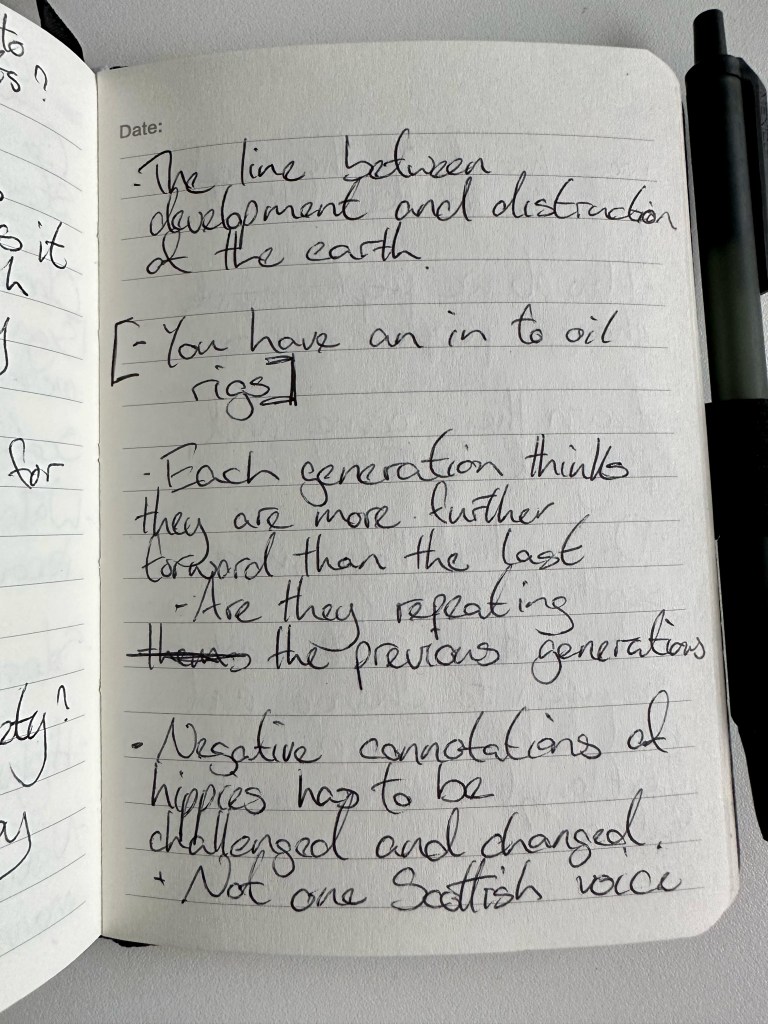 to
s?
s it
h
y
for
ety?
ay
Date:
- The line between
development and distraction
of the earth.
[- You have an in to oil
rigs]
- Each generation thinks
they are more further
forward than the last
- Are they repeating
the previous generations
- Negative connotations of
hippies has to be
challenged and changed.
+ Not one Scottish voice